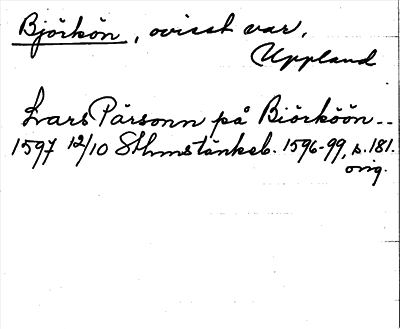 Björkön, ovisst var,
Uppland
Lars Pärsonn på Biörköön--
1597 12/10 Sthmstänkeb. 1596-99, s. 181.
orig.